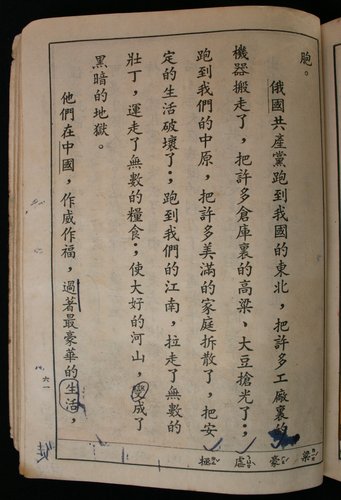 胞。
俄國共產黨跑到我國的東北，把許多工廠裏的
機器搬走了，把許多倉庫裏的高粱、大豆搶光了；
跑到我們的中原，把許多美滿的家庭拆散了，把安
定的生活破壞了；跑到我們的江南，拉走了無數的
壯丁，運走了無數的糧食；使大好的河山，變成了
黑暗的地獄。
他們在中國，作威作福，過著最豪華的生活，
粱
豪
虐
極
六一